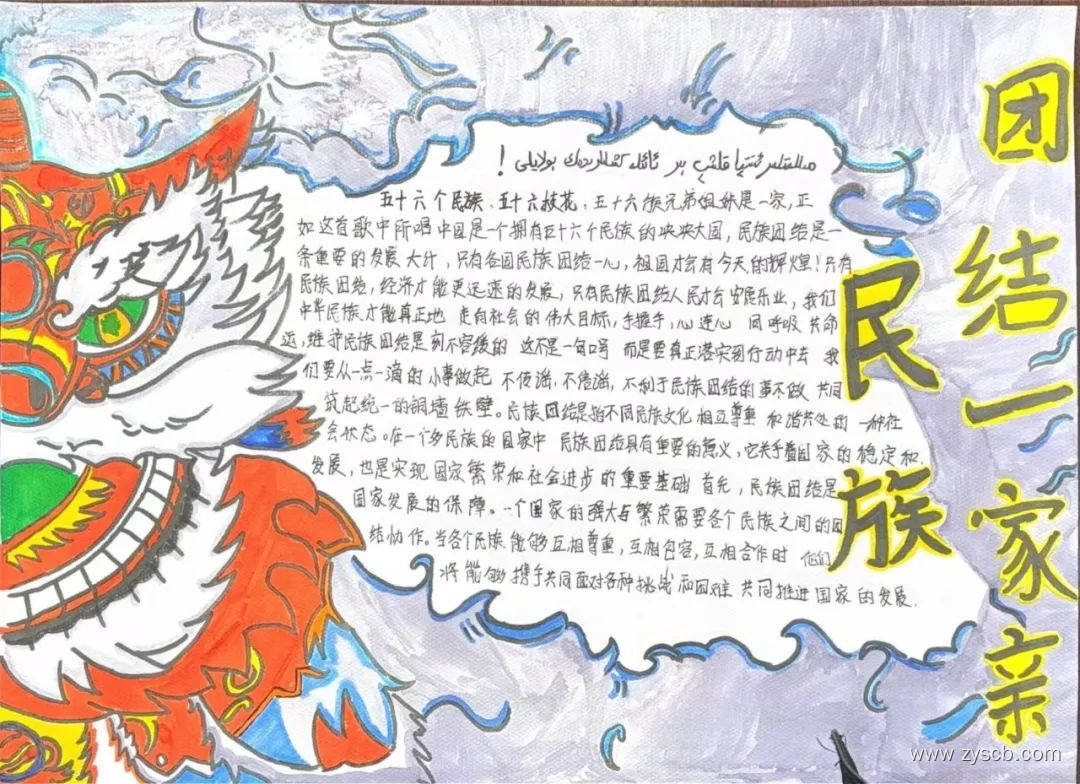 民族
团结一家亲
五十六个民族、五十六枝花、五十六族兄弟姐妹是一家,正
如这首歌中所唱中国是一个拥有五十六个民族的泱泱大国,民族团结是一
条重要的发展大计,只有各国民族团结一心,祖国才会有今天的辉煌!只有
民族团结,经济才能更迅速的发展,只有民族团结人民才会安居乐业,我们
中华民族才能真正地 走向社会的伟大目标,手握手,心连心 同呼吸 共命
运,维护民族团结是刻不容缓的 这不是一句口号 而是要真正落实到行动中去 我
们要从一点一滴的小事做起 不传谣,不信谣,不利于民族团结的事不做 共同
筑起统一的铜墙铁壁。民族团结是指不同民族文化 相互尊重 和谐共处的一种社
会状态。在一个多民族的国家中 民族团结具有重要的意义,它关乎着国家的稳定和
发展,也是实现国家繁荣和社会进步的重要基础 首先,民族团结是
国家发展的保障。一个国家的强大与繁荣需要各个民族之间的团
结协作。当各个民族能够互相尊重,互相包容,互相合作时 他们
将能够携手共同面对各种挑战和困难 共同推进国家的发展.
www.zyscb.com